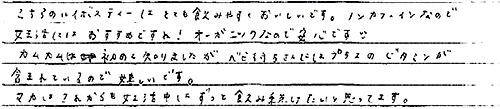 こちらのルイボスティーはとても飲みやすくおいしいです。ノンカフェインなので
妊活にはおすすめですね！オーガニックなので安心です
カムカムは初めて知りましたが べじらうさんにはプラスのビタミンが
含まれているので嬉しいです。
マカはこれからも妊活中はずっと飲み続けたいと思ってます。